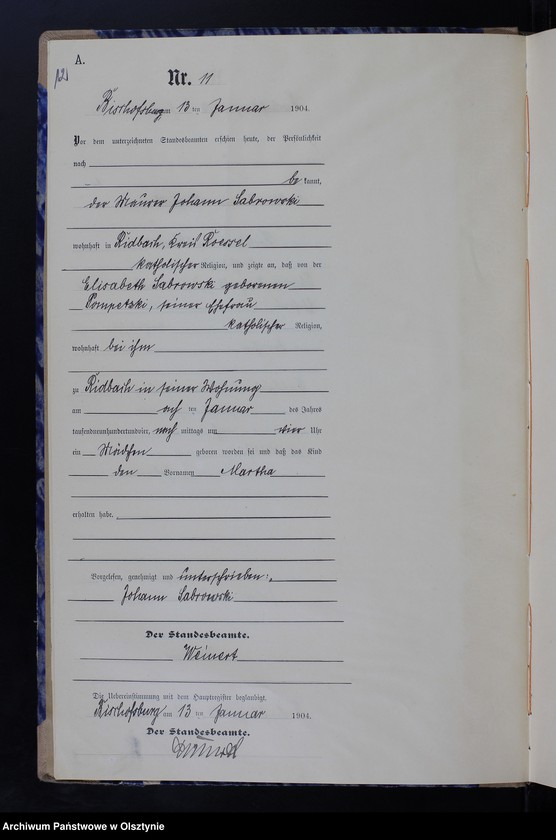 A.
12
Nr. 11
Bischofsburg am 13 ten Januar 1904.
Vor dem unterzeichneten Standesbeamten erschien heute, der Persönlichkeit
nach
be kannt,
der Maurer Johann Sabrowski
wohnhaft in Ridbach, Kreis Roessel
katholischer Religion, und zeigte an, daß von der
Elisabeth Sabrowski geborenen
Pompetzki, seiner Ehefrau
katholischer Religion,
wohnhaft bei ihm
zu Ridbach in seiner Wohnung
am acht ten Januar des Jahres
tausendneunhundertundvier, nach mittags um vier Uhr
ein Mädchen geboren worden sei und daß das Kind
den Vornamen Martha
erhalten habe.
Vorgelesen, genehmigt und unterschrieben:
Johann Sabrowski
Der Standesbeamte.
Weinert
Die Uebereinstimmung mit dem Hauptregister beglaubigt.
Bischofsburg am 13 ten Januar 1904.
Der Standesbeamte.
Weinert
Archiwum Państwowe w Olsztynie